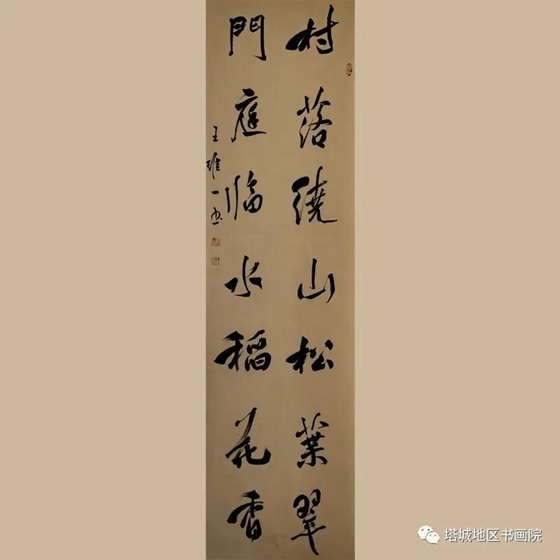 村落繞山松葉翠
門庭臨水稻花香
王唯一书
塔城地区书画院